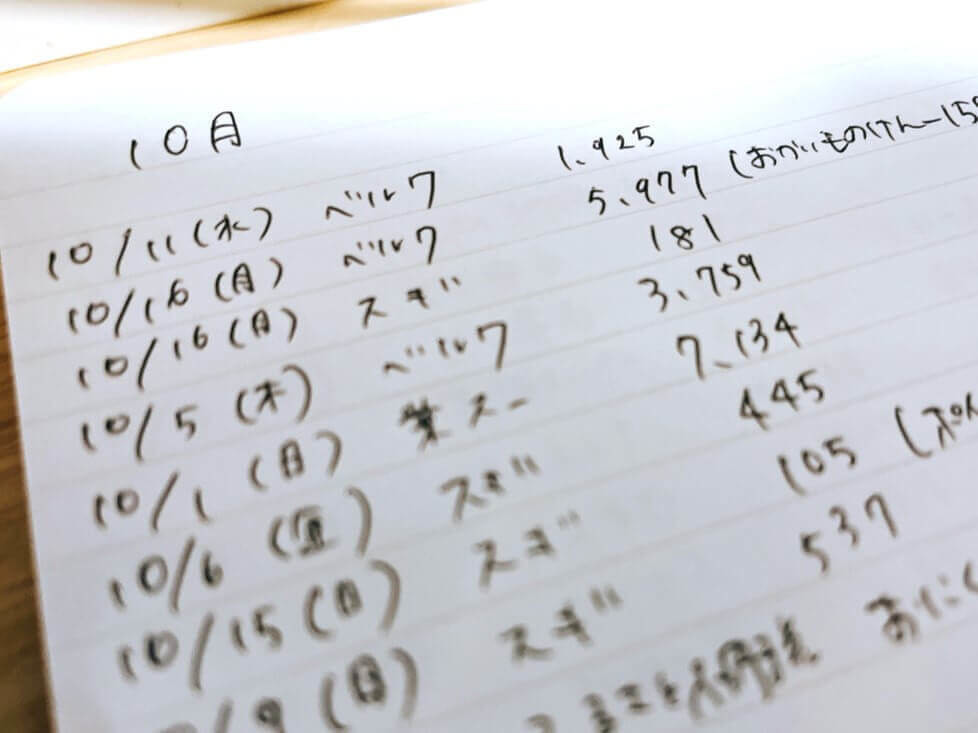 10月
10/11(水) ベルク 1,925
10/16(月) ベルク 5,977 (おかいものけん-150
10/16(月) スギ 181
10/5 (木) ベルク 3,759
10/1 (日) 業スー 7,134
10/6 (金) スギ 445
10/15(日) スギ 105
10/9 (日) スギ 537